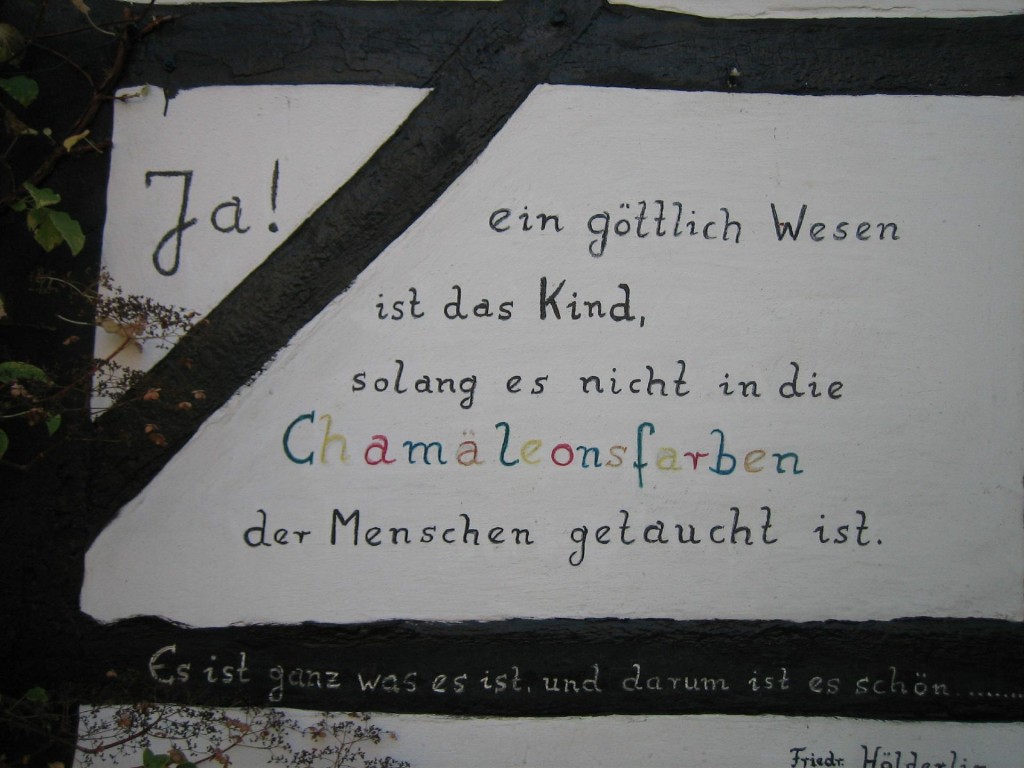 Ja! ein göttlich Wesen
ist das Kind,
solang es nicht in die
Chamäleonsfarben
der Menschen getaucht ist.
Es ist ganz was es ist, und darum ist es schön ........
Friedr. Hölderlin